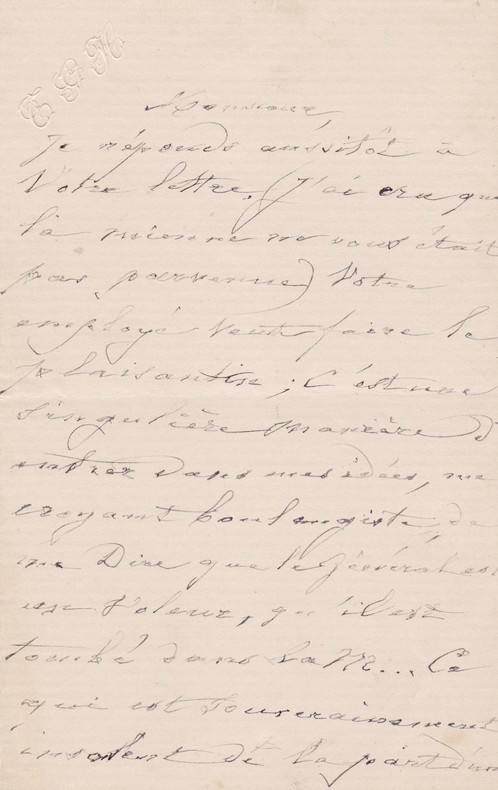 Monsieur,
Je réponds aussitôt à
Votre lettre. (J'ai cru que
la mienne ne vous était
pas parvenue) Votre
employé veut faire le
plaisantin ; c'est une
singulière manière d
entrer dans mes idées, me
croyant boulangiste, de
me Dire que le Général est
un voleur, qu'il est
tombé dans la M... Ce
qui est souverainement
insolent de la part d'un